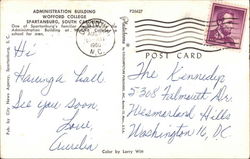 ADMINISTRATION BUILDING
WOFFORD COLLEGE
SPARTANBURG, SOUTH CAROLINA
One of Spartanburg's familiar
Administration Building at Wofford College
school for men.
P26627
1960
N.C.
POST CARD
Hi
Having a ball.
See you soon
Love,
Aurelia
The Kennedys
5308 Falmouth Dr.
Westmoreland Hills
Washington 16, DC
Pub. by City News Agency, Spartanburg, S. C.
Color by Larry Witt